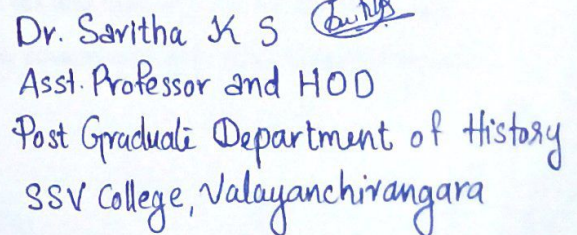 Dr. Savitha K S
Asst. Professor and HOD
Post Graduate Department of History
SSV College, Valayanchirangara